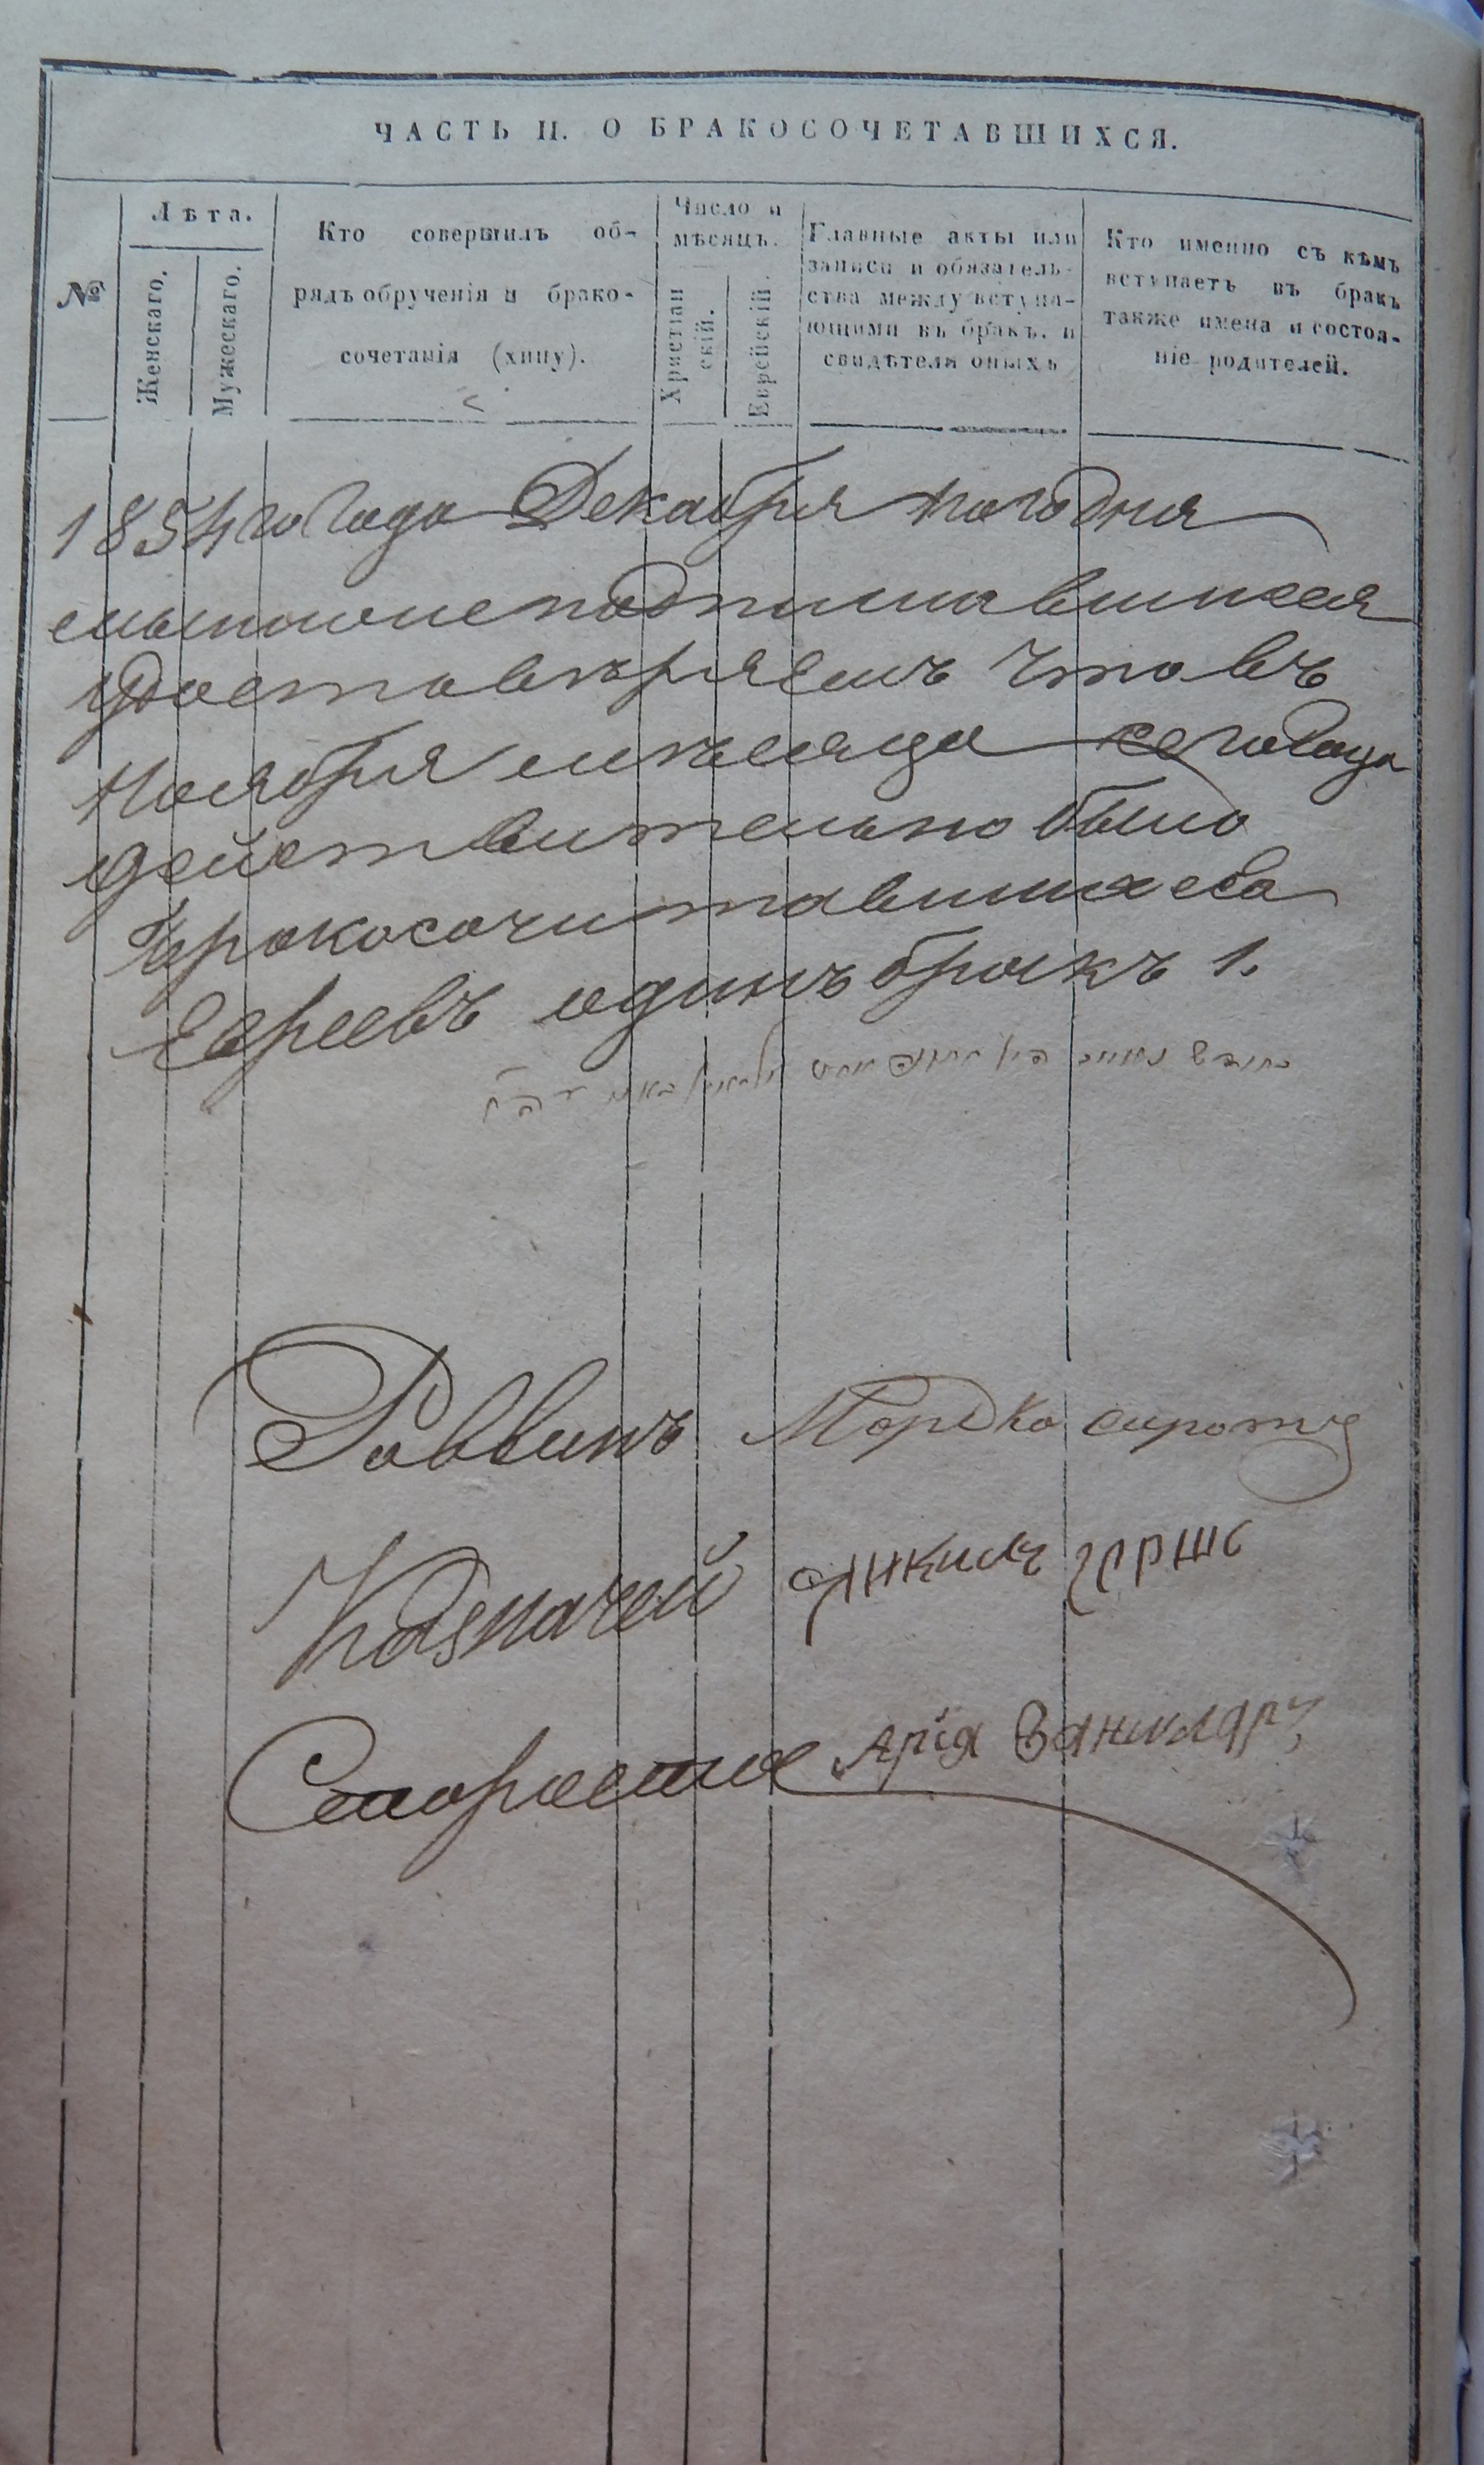 ЧАСТЬ II. О БРАКОСОЧЕТАВШИХСЯ.
№
Лѣта.
Женскаго.
Мужескаго.
Кто совершилъ об-
рядъ обрученія и брако-
сочетанія (хипу).
Число и
мѣсяцъ.
Христіан
скій.
Еврейскій.
Главные акты или
записи и обязатель-
ства между вступа-
ющими въ бракъ. и
свидѣтели оныхъ
Кто именно съ кѣмъ
вступаетъ въ бракъ
также имена и состоя-
ніе родителей.
1854 го Года Декабря дня
подписавшиеся
удоставѣряемъ что въ
Ноября мѣсяца сего Года
действительно было
Бракосочитавшихся
Евреевъ одинъ бракъ 1.
Раввинъ Мордко сирота
Казначей гершъ
Староста Арія